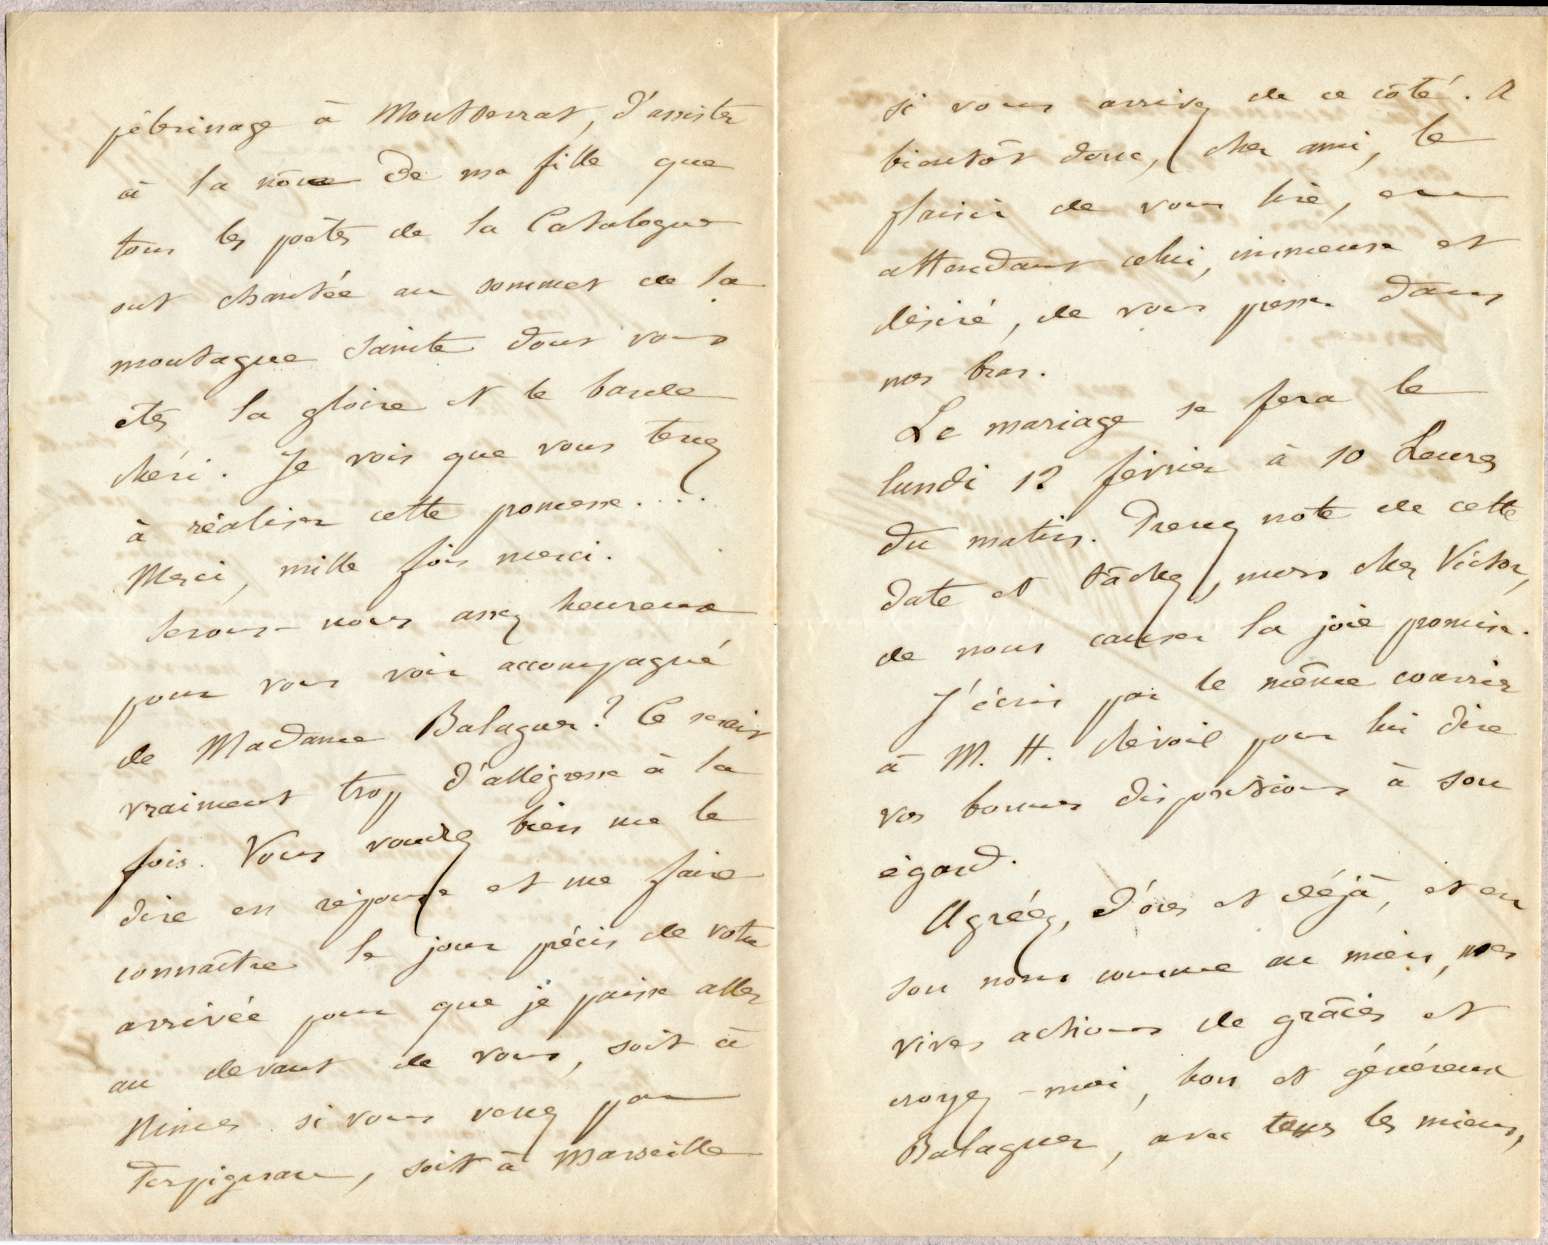 pélerinage à Montserrat, d'assister
à la nôce de ma fille que
tous les poëtes de la Catalogne
ont chantée au sommet de la
montagne sainte dont vous
êtes la gloire et le barde
chéri. Je vois que vous tenez
à réaliser cette promesse....
Merci, mille fois merci.
Serons-nous assez heureux
pour vous voir accompagné
de Madame Balaguer? Ce serait
vraiment trop d'allégresse à la
fois. Vous voudrez bien me le
dire en réponse et me faire
connaître le jour précis de votre
arrivée pour que je puisse aller
au devant de vous, soit à
Nimes si vous venez par
Perpignan, soit à Marseille
si vous arrivez de ce côté. A
bientôt donc, cher ami, le
plaisir de vous lire, en
attendant celui, immense et
désiré, de vous presser dans
nos bras.
Le mariage se fera le
lundi 12 février à 10 heures
du matin. Prenez note de cette
date et tâchez, mon cher Victor,
de nous causer la joie promise.
J'écris par le même courrier
à M. H. Révoil pour lui dire
vos bonnes dispositions à son
égard.
Agréez, d'ores et déjà, et en
son nom comme au mien, mes
vives actions de grâces et
croyez-moi, bon et généreux
Balaguer, avec tous les miens,